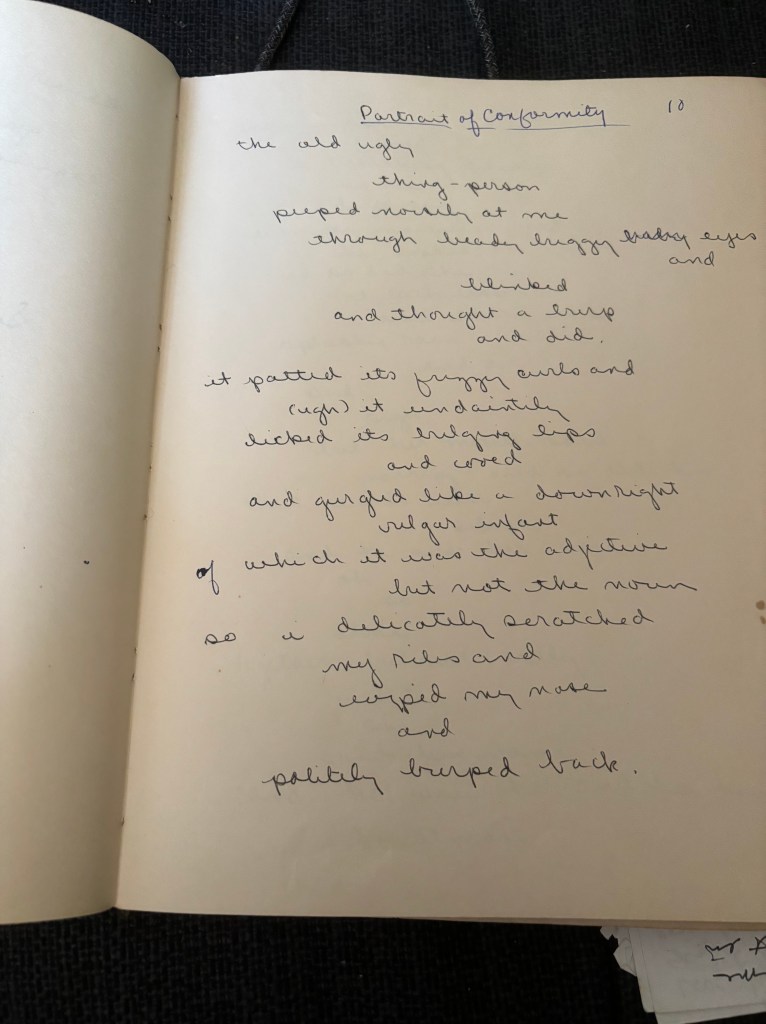 Portrait of Conformity 10
the old ugly
thing-person
peeped noisily at me
through beady buggy baby eyes
and
blinked
and thought a burp
and did.
it patted its frizzy curls and
(ugh) it undaintily
licked its bulging lips
and cooed
and gurgled like a downright
vulgar infant
of which it was the adjective
but not the noun
so i delicately scratched
my ribs and
wiped my nose
and
politely burped back.